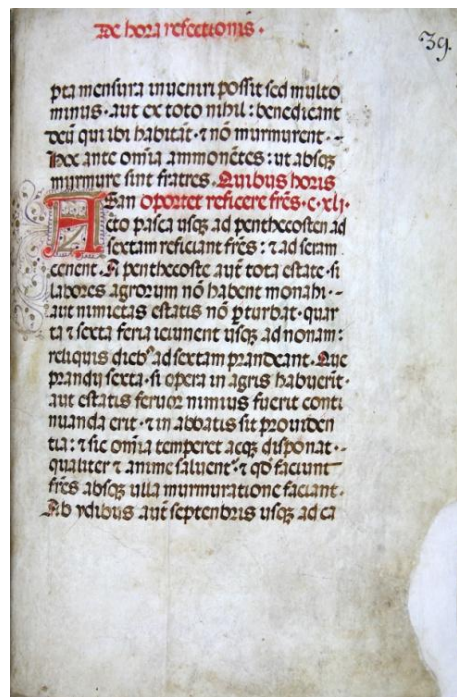 De hora refectionis.
39.
pta mensura inveniri possit sed multo
minus. aut ex toto nihil: benedicant
deū qui ibi habitāt. ⁊ nō murmurent.-
Hoc ante omīa ammonētes: ut absqꝫ
murmure sint fratres. Quibus horis
A San oportet reficere frēs. c. xli.
cto pasca usqꝫ ad penthecosten ad
sextam reficiant frēs: ⁊ ad seram
cenent. A penthecoste aūt tota estate. si
labores agrorum nō habent monahi.-
aut nimietas estatis nō ꝑturbat. quar
ta ⁊ sexta feria ieiunent usqꝫ ad nonam:
reliquis diebꝰ ad sextam prandeant. Que
prandii sexta. si opera in agris habuerit.
aut estatis fervor nimius fuerit conti
nuanda erit. ⁊ in abbatis sit providen
tia: ⁊ sic omīa temperet atqꝫ disponat.-
qualiter ⁊ anime salvent᷑. ⁊ qđ faciunt
frēs absqꝫ ulla murmuratione faciant.
Ab ydibus aūt septenbris usqꝫ ad ca